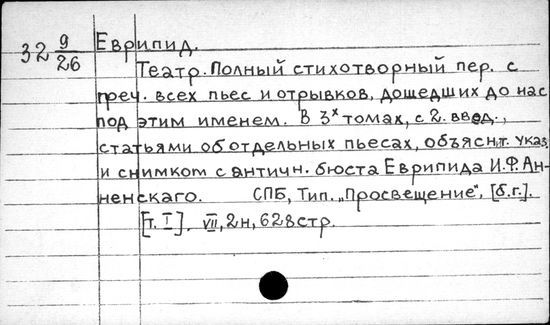 32 9/26 Еврипид.
Театр. Полный стихотворный пер. с
греч. всех пьес и отрывков, дошедших до нас
под этим именем. В 3х томах, с 2. введ.,
статьями об отдельных пьесах, объяснит. указ.
и снимком с античн. бюста Еврипида И.Ф.Ан-
ненскаго. СПБ, Тип. „Просвещение", [б.г.].
[т. I]. VII, 2н, 628 стр.